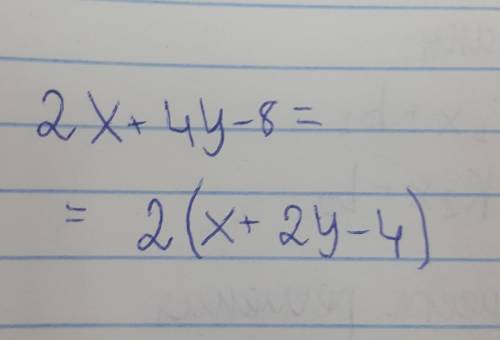 2x+4y-8=
= 2(x+2y-4)